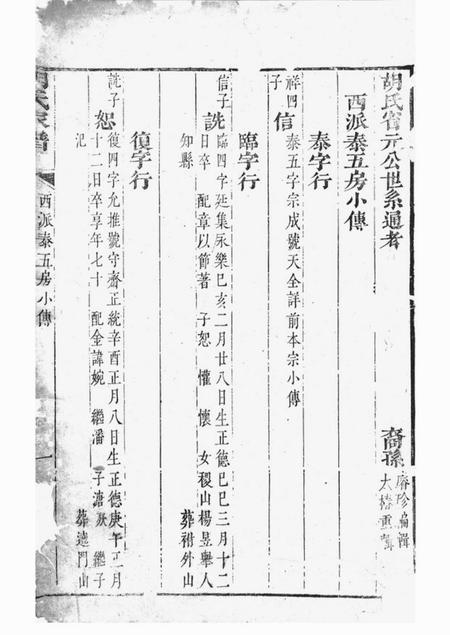 胡氏省元公世系通考
裔孫
珍編輯
太椿重輯
西派泰五房小傳
泰字行
祥四子
信
泰五字宗成號天全詳前本宗小傳
臨字行
信子
詵
臨四字廷集永樂己亥二月廿八日生正德己巳三月十二
日卒 配章以節著 子恕 懽 懷 女稷山楊昱舉人
知縣 葬祔外山
復字行
詵子
恕
復四字允推號守齋正統辛酉正月八日生正德庚午二月
十二日卒享年七十 配金諱婉 繼潘 子滄 繼子
汜 葬遶門山
胡氏家譜
西派泰五房小傳
一